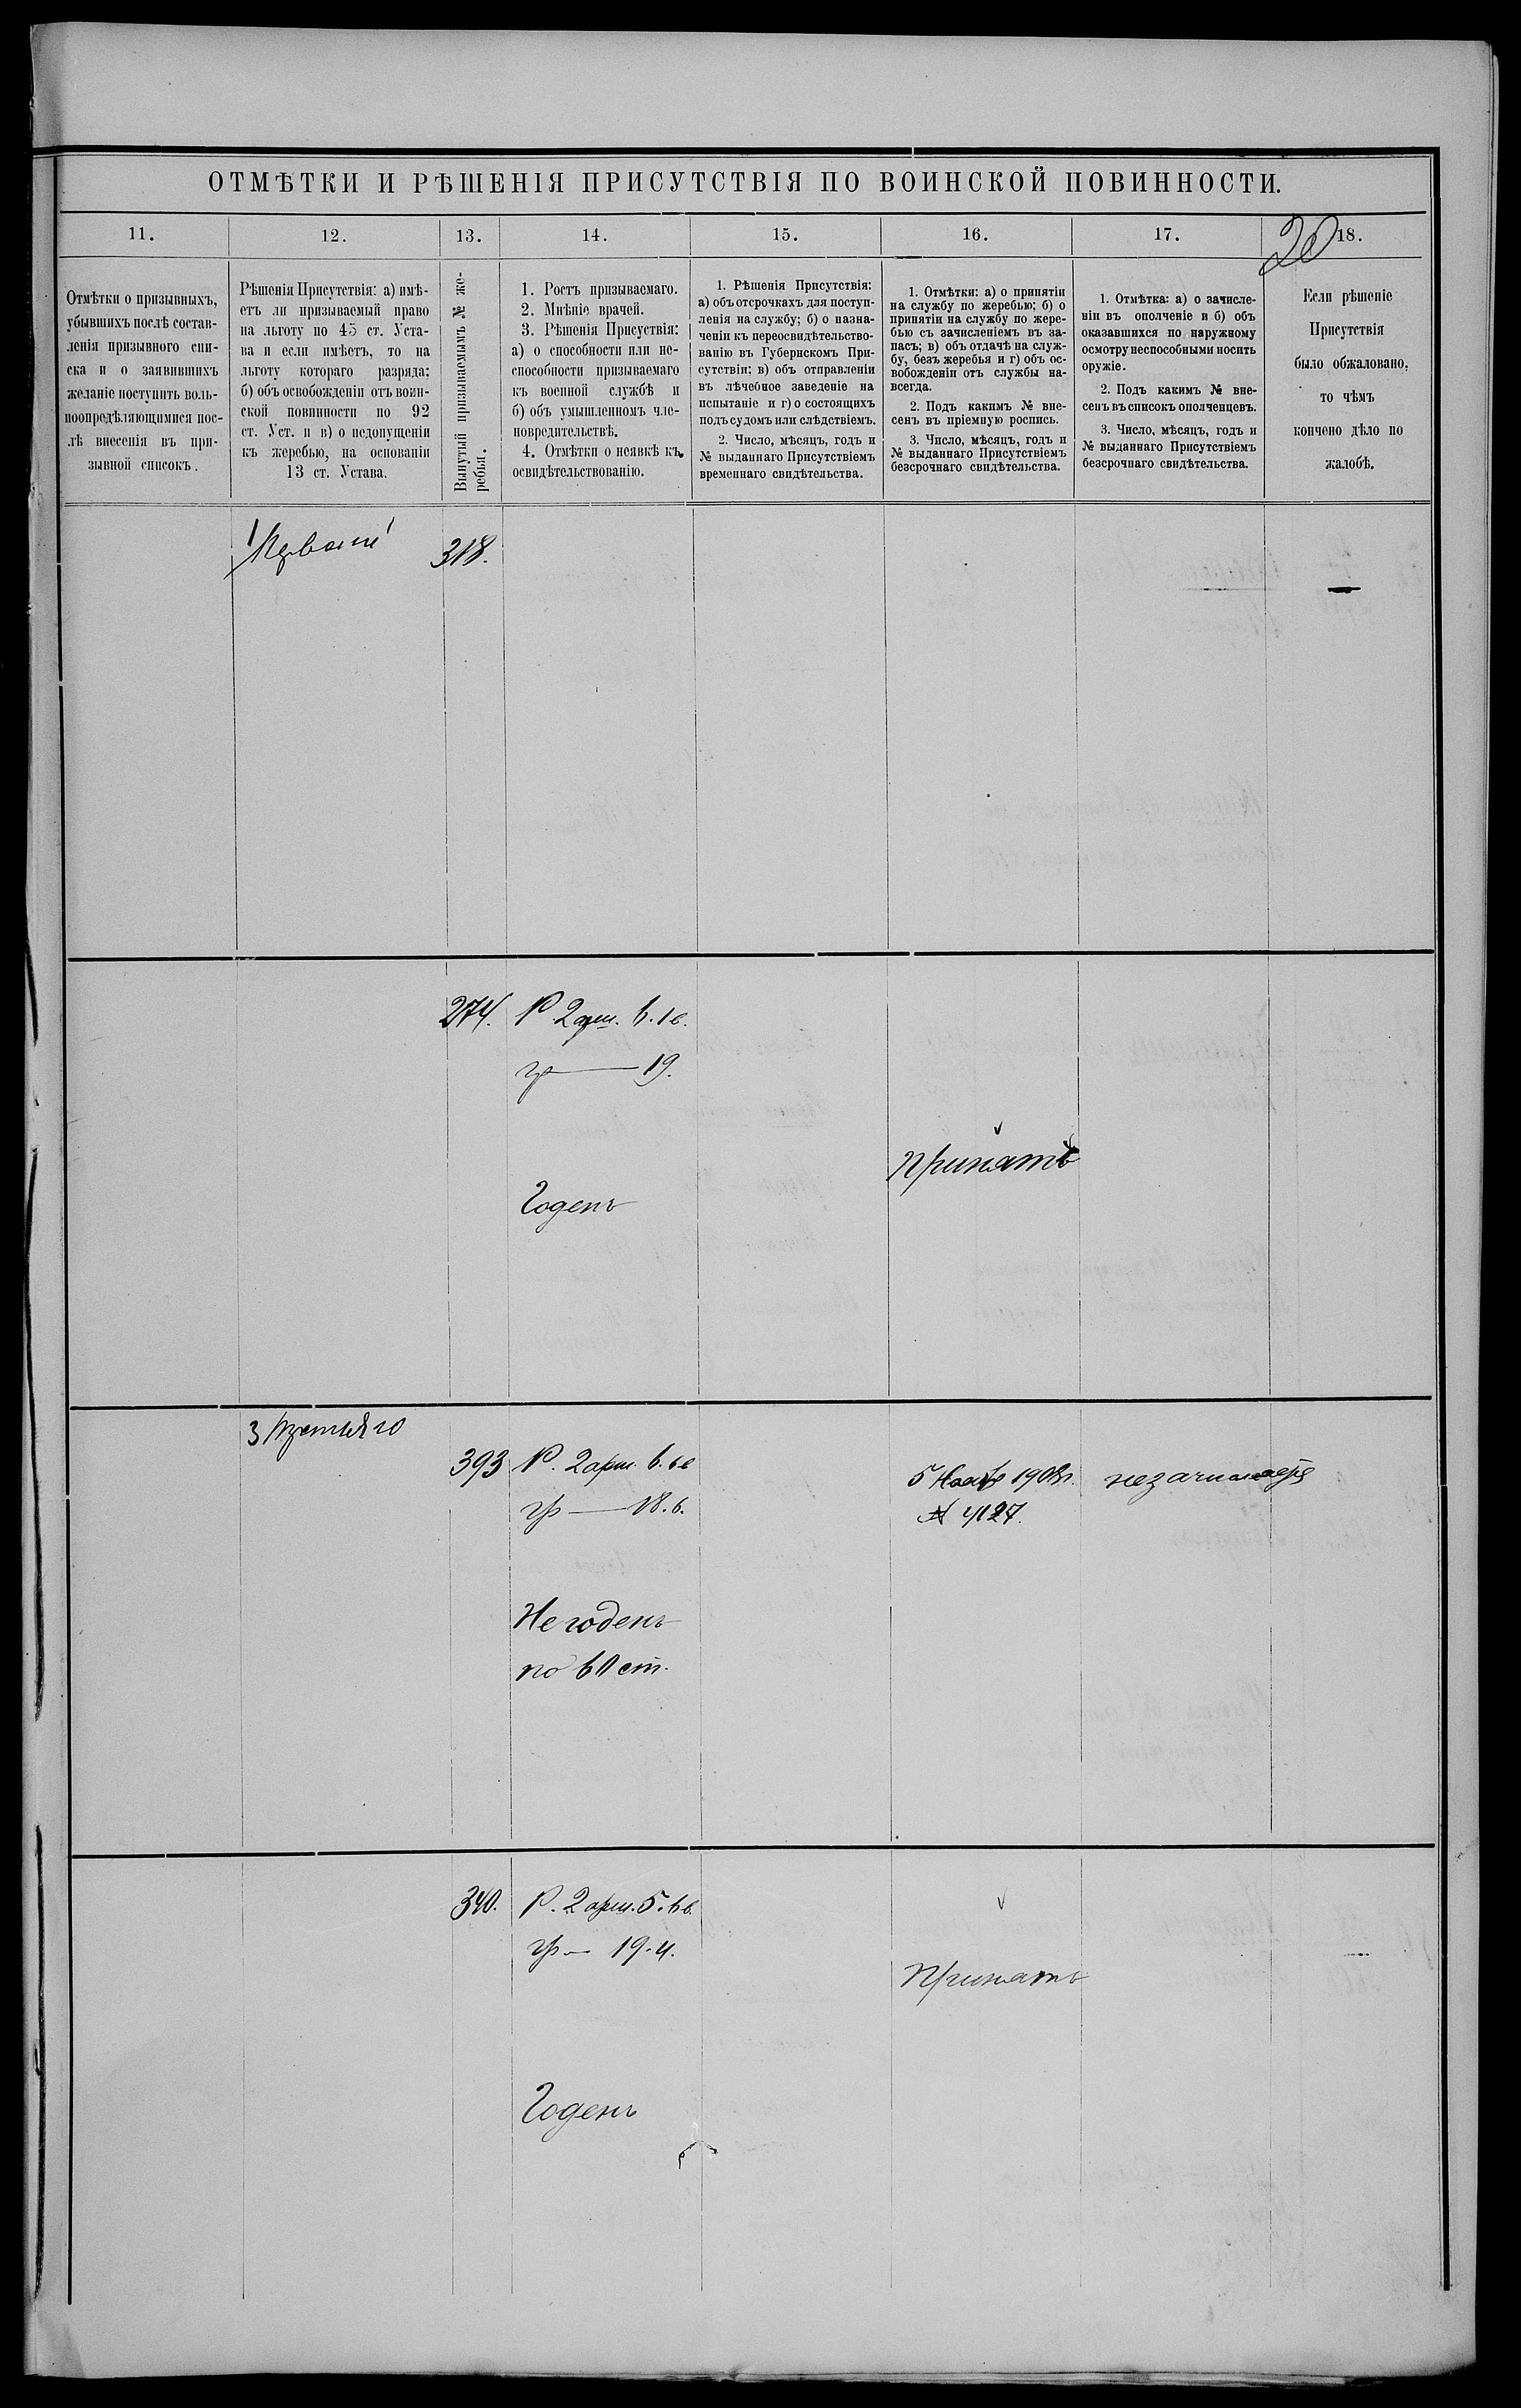 ОТМѢТКИ И РѢШЕНІЯ ПРИСУТСТВІЯ ПО ВОИНСКОЙ ПОВИННОСТИ.
20
11.
12.
13.
14.
15.
16.
17.
18.
Отмѣтки о призывныхъ,
убывшихъ послѣ состав-
ленія призывного спи-
ска и о заявившихъ
желаніе поступить воль-
ноопредѣляющимися пос-
лѣ внесенія въ при-
зывной списокъ.
Рѣшенія Присутствія: а) имѣ-
етъ ли призываемый право
на льготу по 45 ст. Уста-
ва и если имѣетъ, то на
льготу котораго разряда;
б) объ освобожденіи отъ воин-
ской повинности по 92
ст. Уст. и в) о недопущеніи
къ жеребью, на основаніи
13 ст. Устава.
Вынутый призываемымъ № же-
ребья.
1. Ростъ призываемаго.
2. Мнѣніе врачей.
3. Рѣшенія Присуствія:
а) о способности или не-
способности призываемаго
къ военной службѣ и
б) объ умышленномъ чле-
новредительствѣ.
4. Отмѣтки о неявкѣ къ
освидѣтельствованію.
1. Рѣшенія Присутствія:
а) объ отсрочкахъ для поступ-
ленія на службу; б) о назна-
ченіи къ переосвидѣтельство-
ванію въ Губернскомъ При-
сутствіи; в) объ отправленіи
въ лѣчебное заведеніе на
испытаніе и г) о состоящихъ
подъ судомъ или слѣдствіемъ.
2. Число, мѣсяцъ, годъ и
№ выданнаго Присутствіемъ
временнаго свидѣтельства.
1. Отмѣтки: а) о принятіи
на службу по жеребью; б) о
принятіи на службу по жере-
бью съ зачисленіемъ въ за-
пасъ; в) объ отдачѣ на служ-
бу, безъ жеребья и г) объ ос-
вобожденіи отъ службы на-
всегда.
2. Подъ какимъ № вне-
сенъ въ пріемную роспись.
3. Число, мѣсяцъ, годъ и
№ выданнаго Присутствіемъ
безсрочнаго свидѣтельства.
1. Отмѣтка: а) о зачисле-
ніи въ ополченіе и б) объ
оказавшихся по наружному
осмотру неспособными носить
оружіе.
2. Подъ какимъ № вне-
сенъ въ списокъ ополченцевъ.
3. Число, мѣсяцъ, годъ и
№ выданнаго Присутствіемъ
безсрочнаго свидѣтельства.
Если рѣшеніе
Присутствія
было обжаловано,
то чѣмъ
кончено дѣло по
жалобѣ.
318.
274.
Р. 2 арш. 6. 1 в.
гр — 19.
Годенъ
Принятъ
3 третьяго
393
Р. 2 арш. 6. 6 в
гр — 18. 6.
Не годенъ
по 60 ст.
№ 4127.
340.
Р. 2 арш. 5. 6 в.
гр — 19. 4.
Годенъ
Принятъ